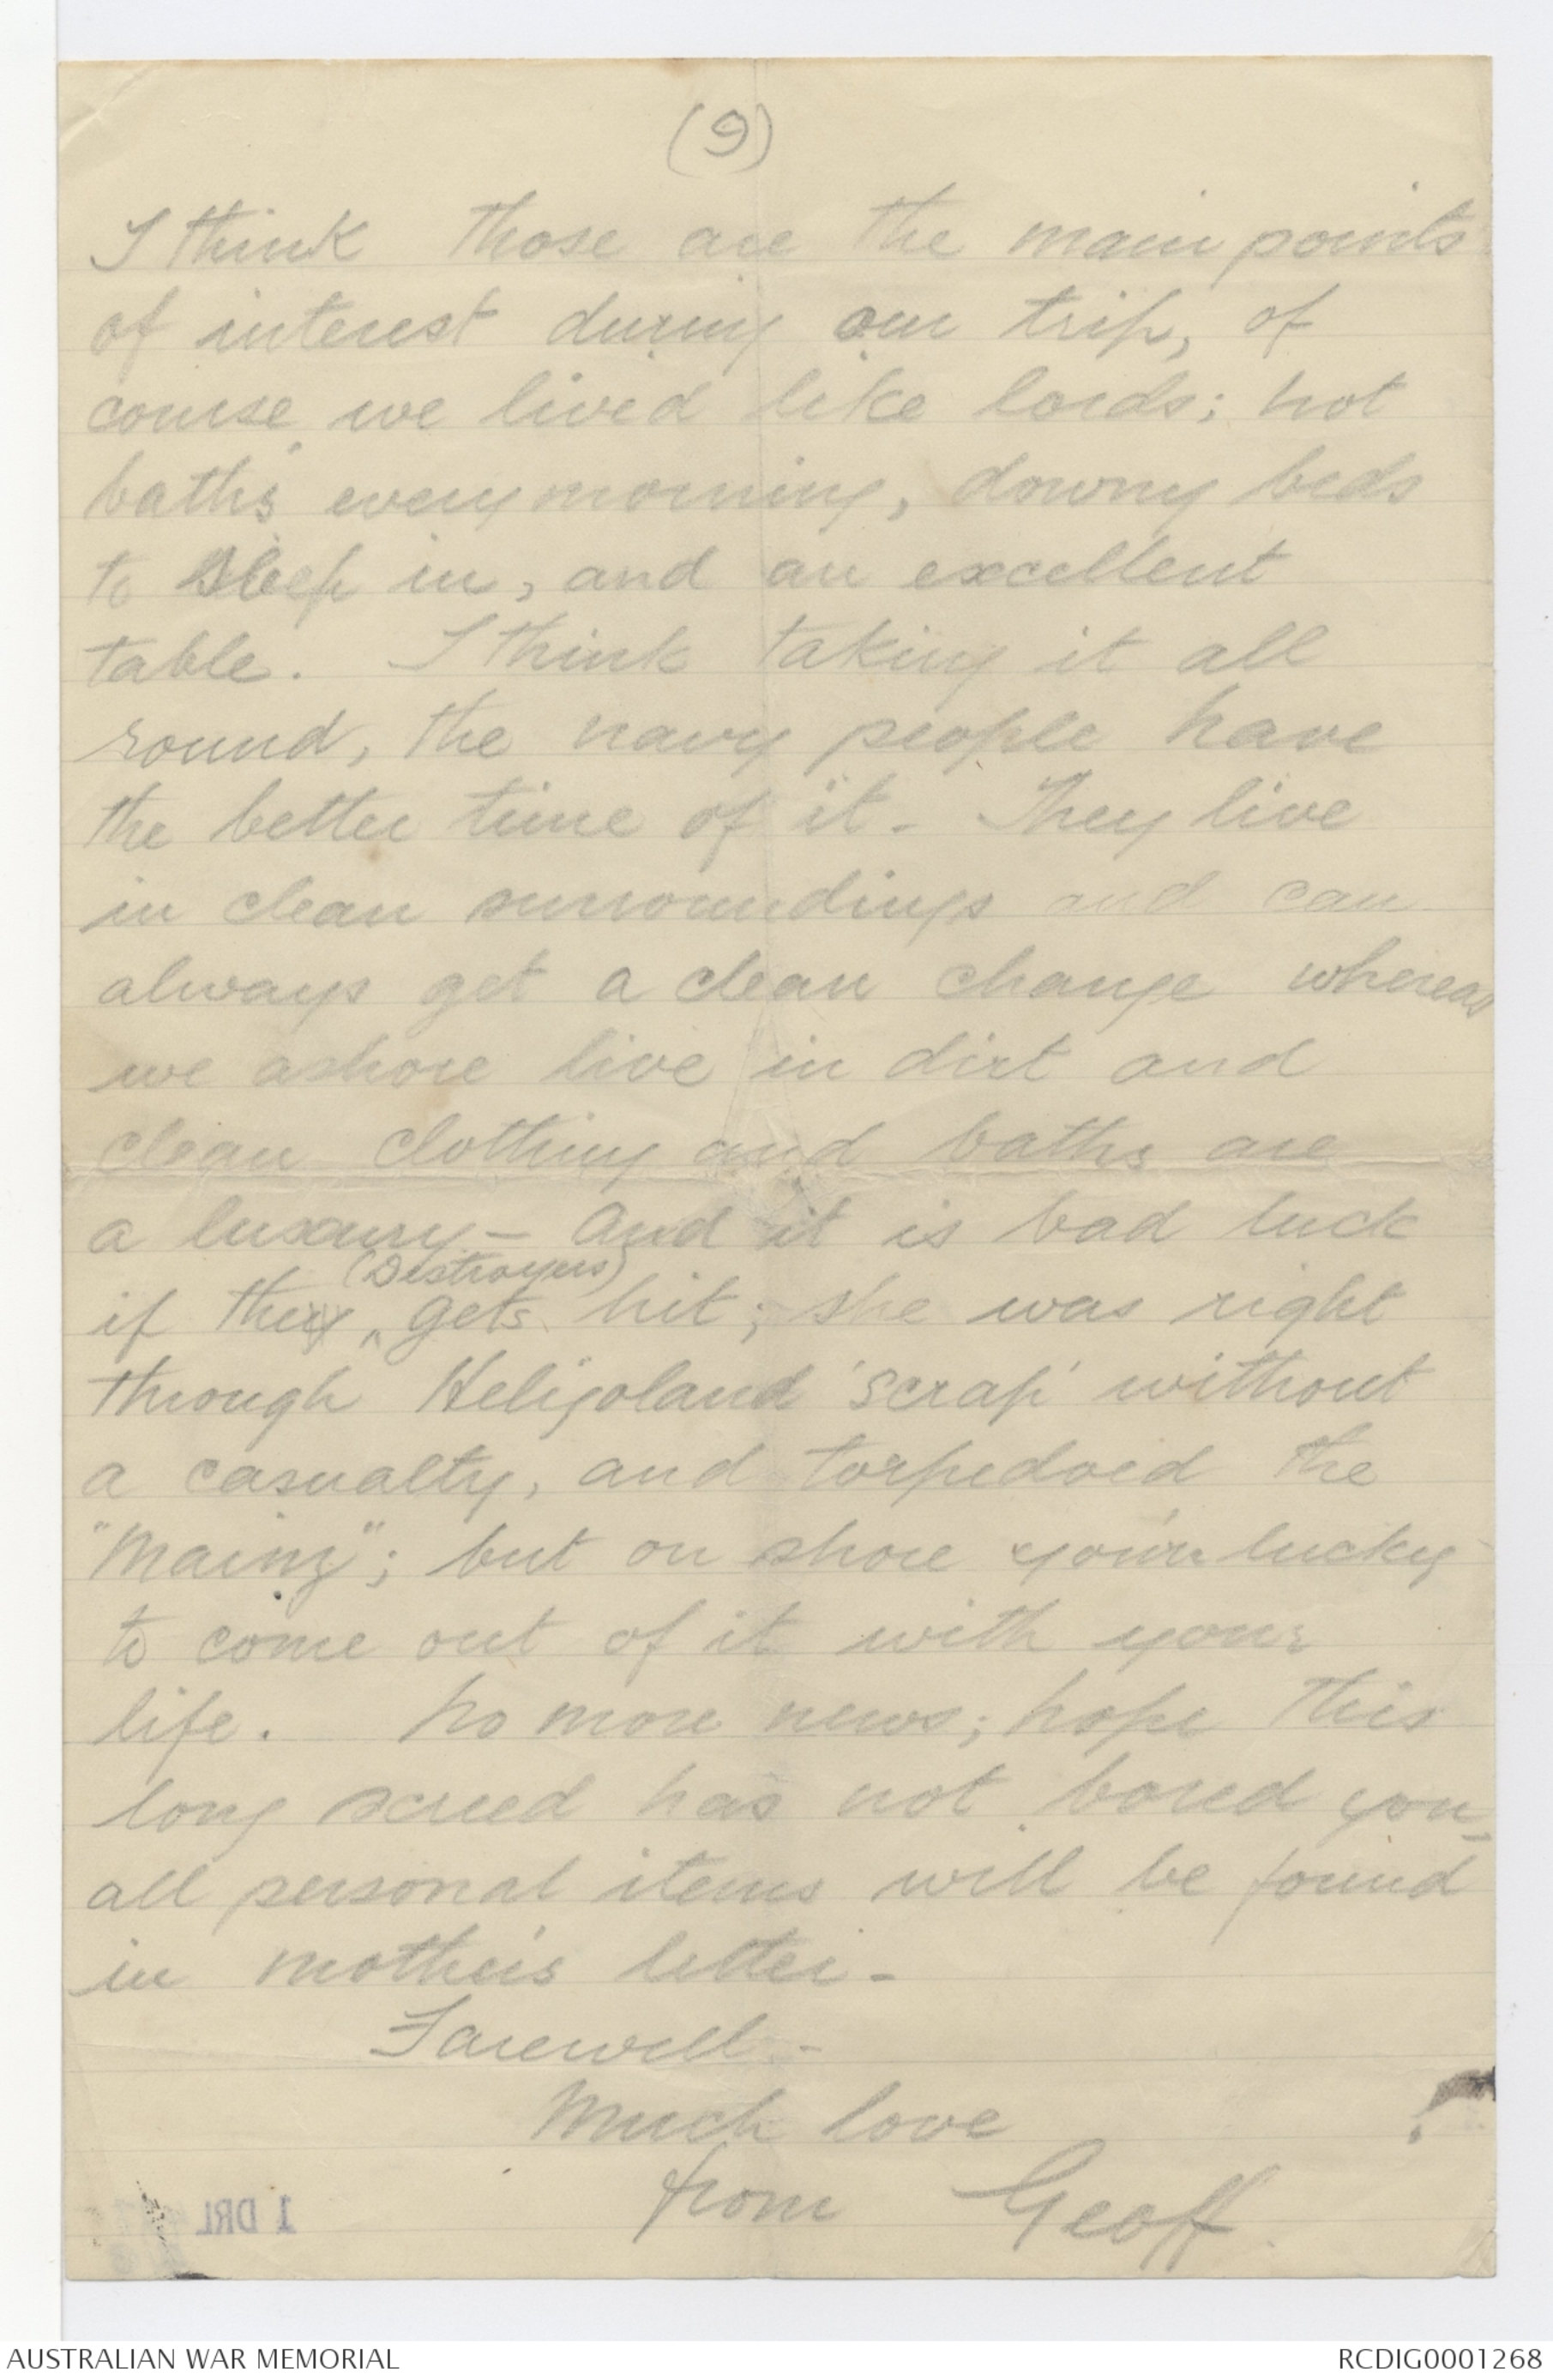 (9)
I think those are the main points
of interest during our trip, of
course we lived like lords; hot
baths every morning, downy beds
to sleep in, and an excellent
table. I think taking it all
round, the navy people have
the better time of it - They live
in clean surroundings and can
always get a clean change whereas
we ashore live in dirt and
clean clothing and baths are
a luxury - And it is bad luck
(Destroyers)
if they gets hit; she was right
through Heligoland 'scrap' without
a casualty, and torpedoed the
"Mainz"; but on shore you're lucky
to come out of it with your
life. No more news; hope this
long screed has not bored you,
all personal items will be found
in mother's letter -
Farewell -
Much love
from Geoff.
1 DRL
AUSTRALIAN WAR MEMORIAL
RCDIG0001268